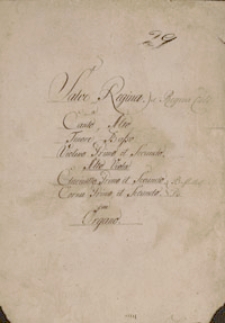 29
Salve Regina. Regina Coeli
Canto, Alto
Tenore, Basso
Violino Primo et Secundo
Alto Viola
Clarinetto Primo et Secundo
Cornu Primo et Secundo
Organo.